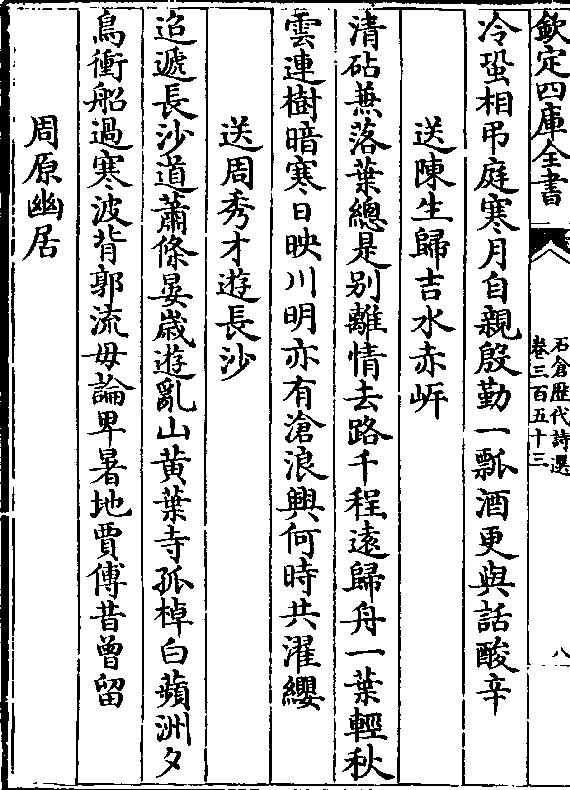 欽定四庫全書
石倉歴代詩選
卷三百五十三
八
冷蛩相弔庭寒月自親殷勤一瓢酒更與話酸辛
送陳生歸吉水赤岸
清砧蕪落葉總是别離情去路千程遠歸舟一葉輕秋
雲連樹暗寒日映川明亦有滄浪興何時共濯纓
送周秀才遊長沙
迢遞長沙道蕭條晏嵗遊亂山黄葉寺孤棹白蘋洲夕
鳥衝船過寒波背郭流毋論卑暑地賈傅昔曾留
周原幽居